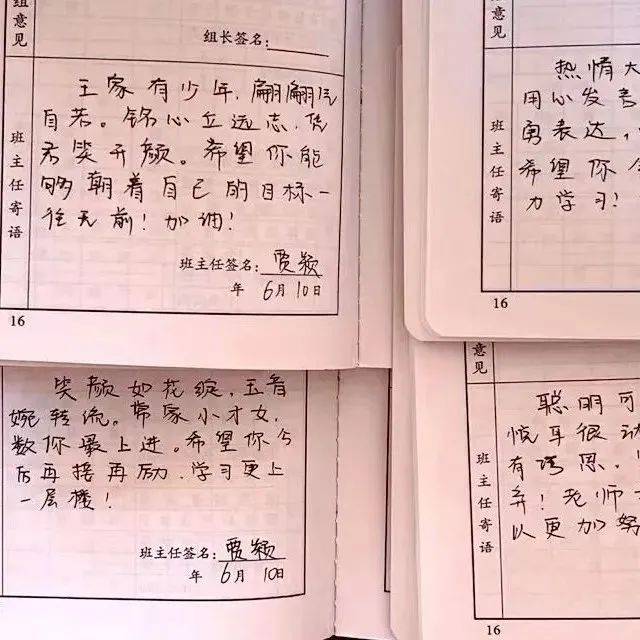 组意见
组长签名：
班主任寄语
王家有少年，翩翩气
自若。铭心立远志，凭
君笑开颜。希望你能
够朝着自己的目标一
往无前！加油！
班主任签名：贾颖
年 6月10日
16
笑颜如花绽，玉音
婉转流。常家小才女，
数你最上进。希望你今
后再接再励，学习更上
一层楼！
班主任签名：贾颖
年 6月 10日
组意见
班主任寄语
热情大
用心发言
勇表达，
希望你今
力学习！
16
意见
班主任寄语
聪明可
悦耳很动
有诱思，
弃！老师
以更加努
16